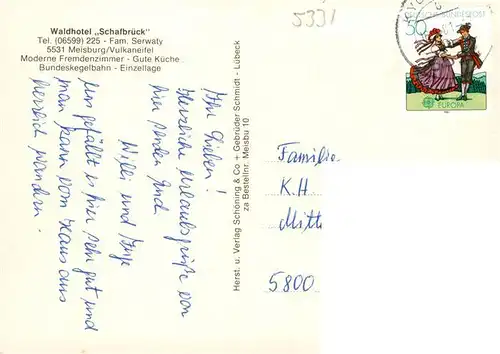 Waldhotel „Schafbrück"
Tel. (06599) 225 - Fam. Serwaty
5531 Meisburg/Vulkaneifel
Moderne Fremdenzimmer - Gute Küche
Bundeskegelbahn - Einzellage
5331
DEUTSCHE BUNDESPOST
50
EUROPA
Ihr Lieben!
Herzliche Urlaubsgrüße von
hier senden Euch
Willi und Inge
Uns gefällt es hier sehr gut und
man kann vom Haus aus
herrlich wandern.
Herst. u. Verlag Schöning & Co + Gebrüder Schmidt - Lübeck
za Bestellnr. Meisbu 10
Familie
K.H.
Mitt
5800